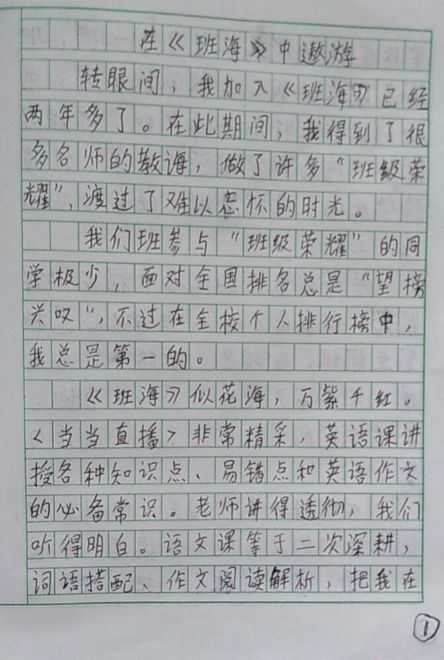 在《班海》中遨游
转眼间，我加入《班海》已经
两年多了。在此期间，我得到了很
多名师的教诲，做了许多“班级荣
耀”，渡过了难以忘怀的时光。
我们班参与“班级荣耀”的同
学极少，面对全国排名总是“望榜
兴叹”，不过在全校个人排行榜中，
我总是第一的。
《班海》似花海，万紫千红。
＜当当直播＞非常精采，英语课讲
授各种知识点、易错点和英语作文
的必备常识。老师讲得透彻，我们
听得明白。语文课等于二次深耕，
词语搭配、作文阅读解析，把我在
1